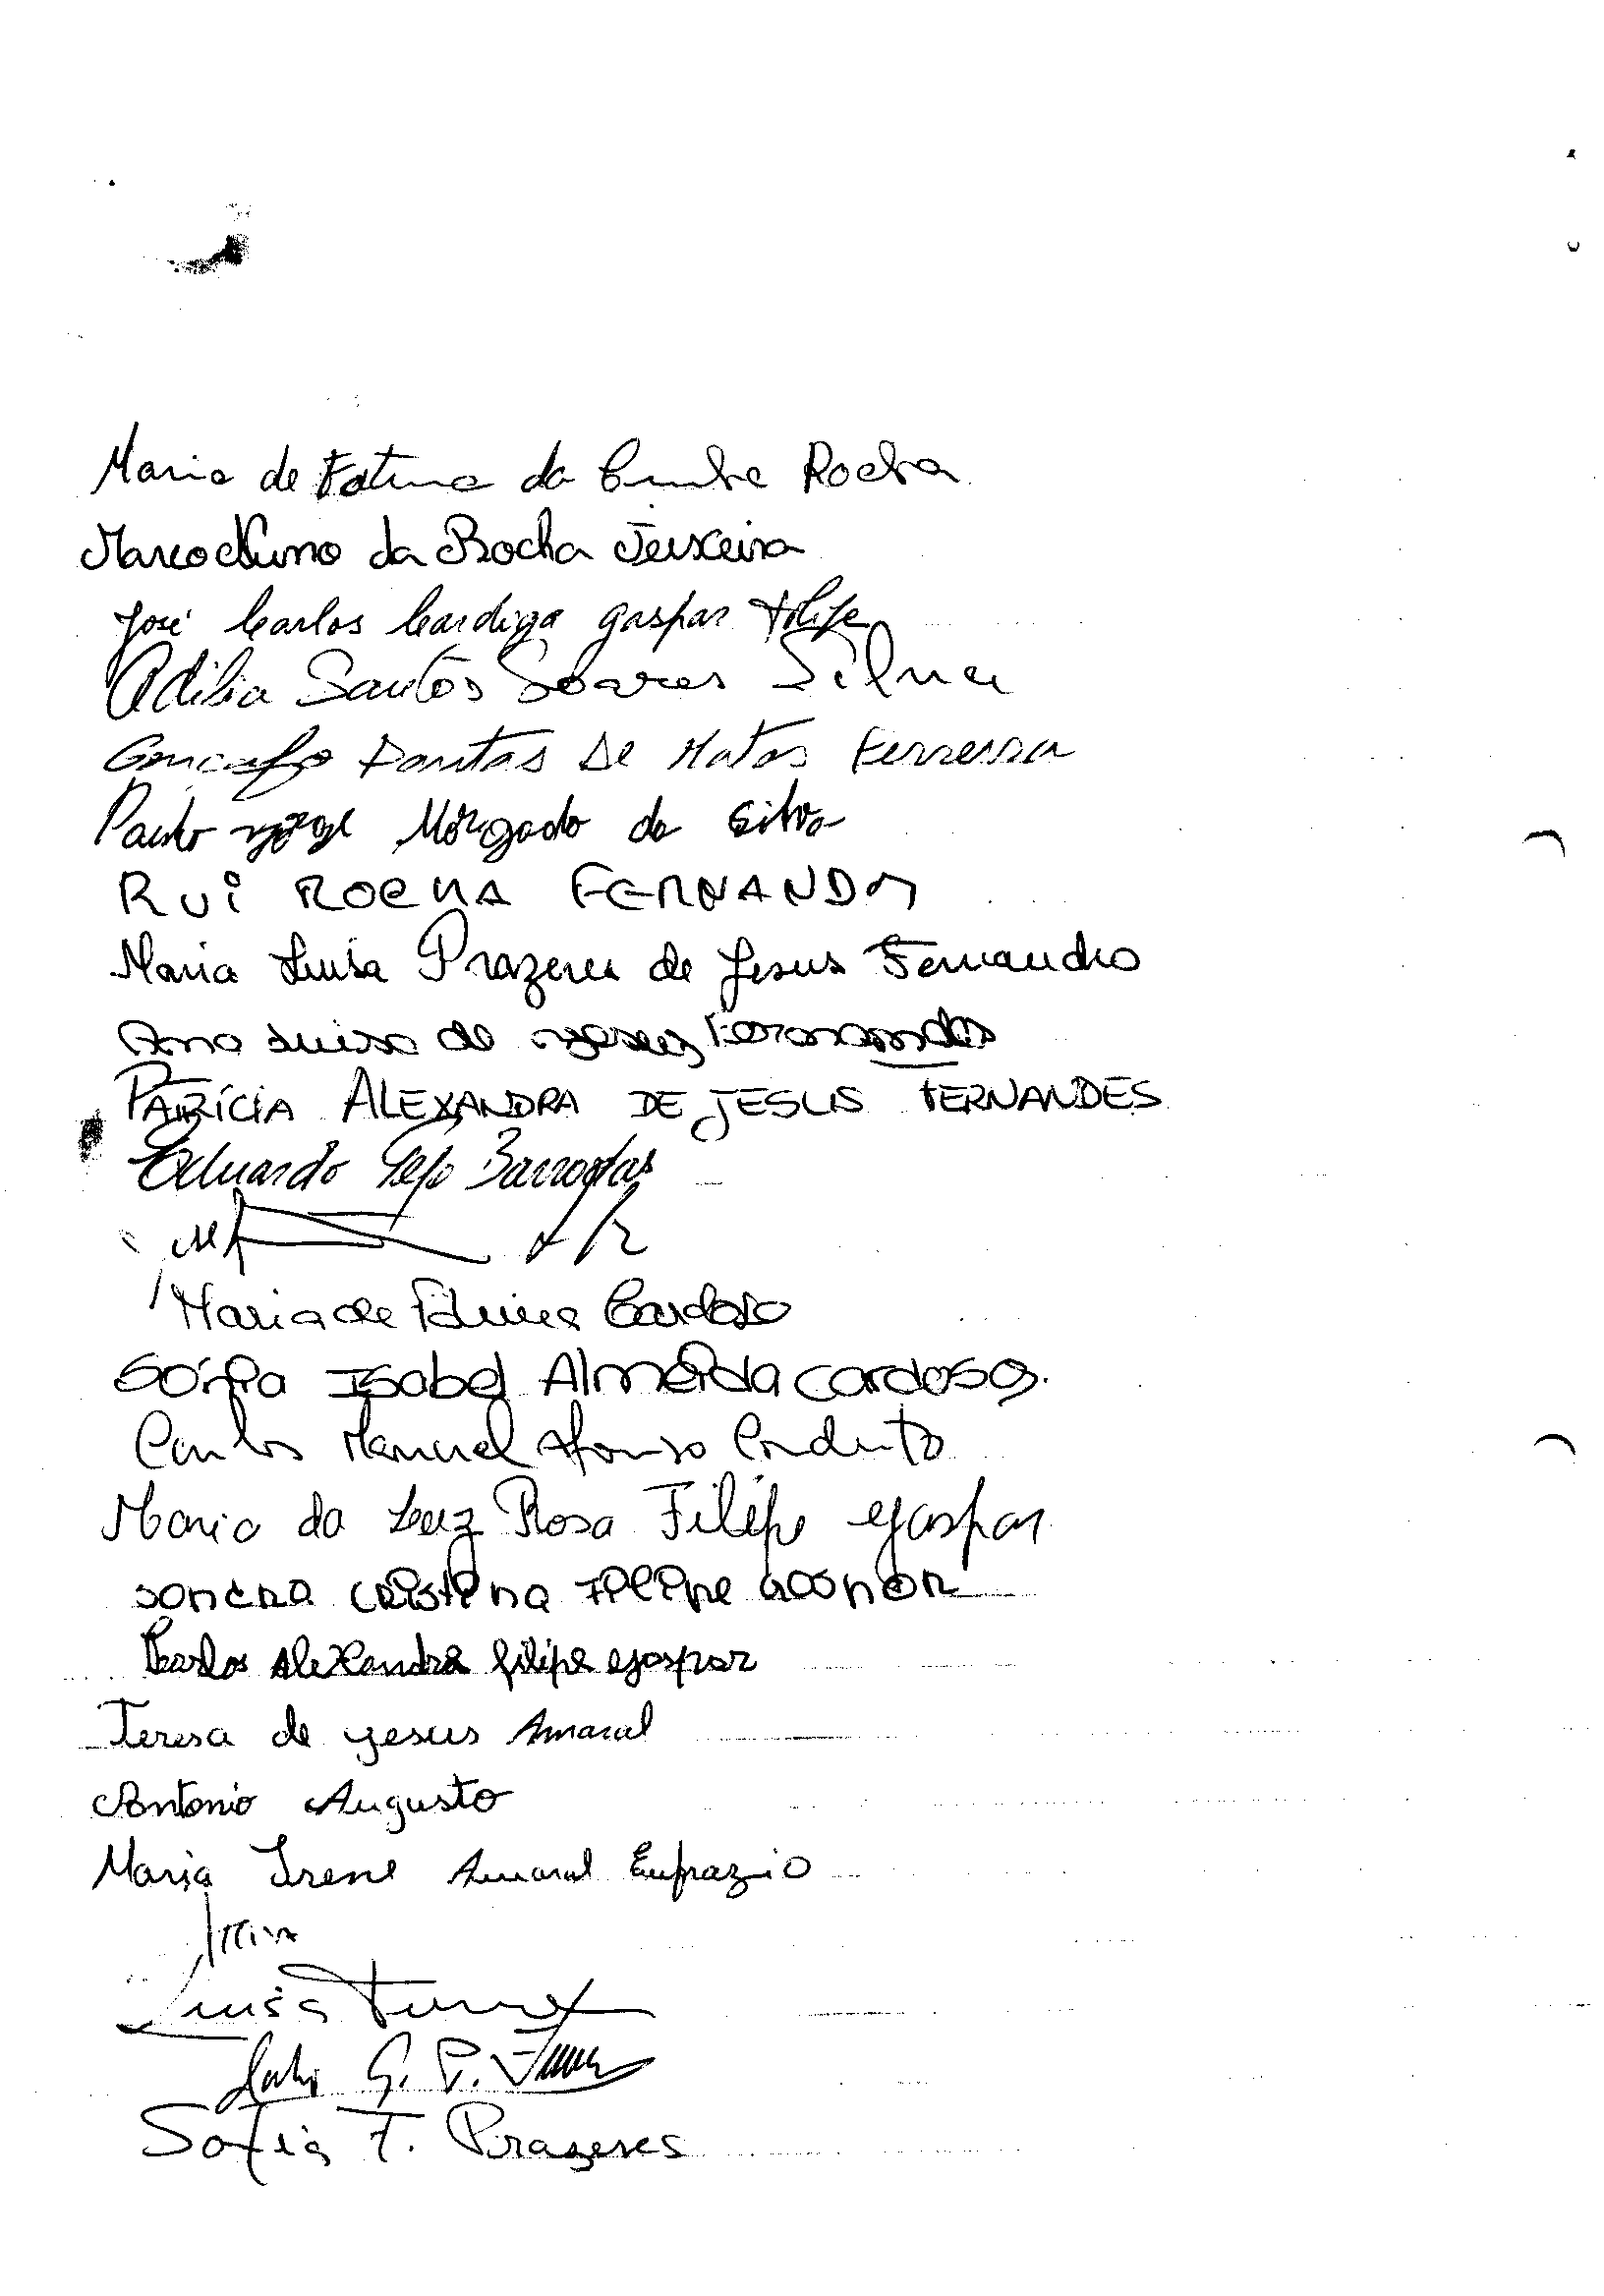 Maria de Fatima da Cunha Rocha
Marco Nuno da Rocha Teixeira
José Carlos Cardiga gaspar Filipe
Adilia Santos Soares Silva
Gonçalo Dantas De Matos Ferreira
Paulo Jorge Morgado da Silva
RUi ROCHA FERNANDO
Maria Luisa Prazeres de Jesus Fernando
Ana Luisa de Jesus Fernandes
PATRÍCIA ALEXANDRA DE JESUS FERNANDES
Eduardo Barrocas
Maria de Fátima Cardoso
Sónia Isabel Almeida Cardoso.
Carlos Manuel Afonso Conduto
Maria da Luz Rosa Filipe Gaspar
Sandra Cristina Filipe
Carlos Alexandre filipe gaspar
Teresa de Jesus Amaral
Antonio Augusto
Maria Irene Amaral Eufrazio
Luisa
G. P.
Sofia F. Prazeres